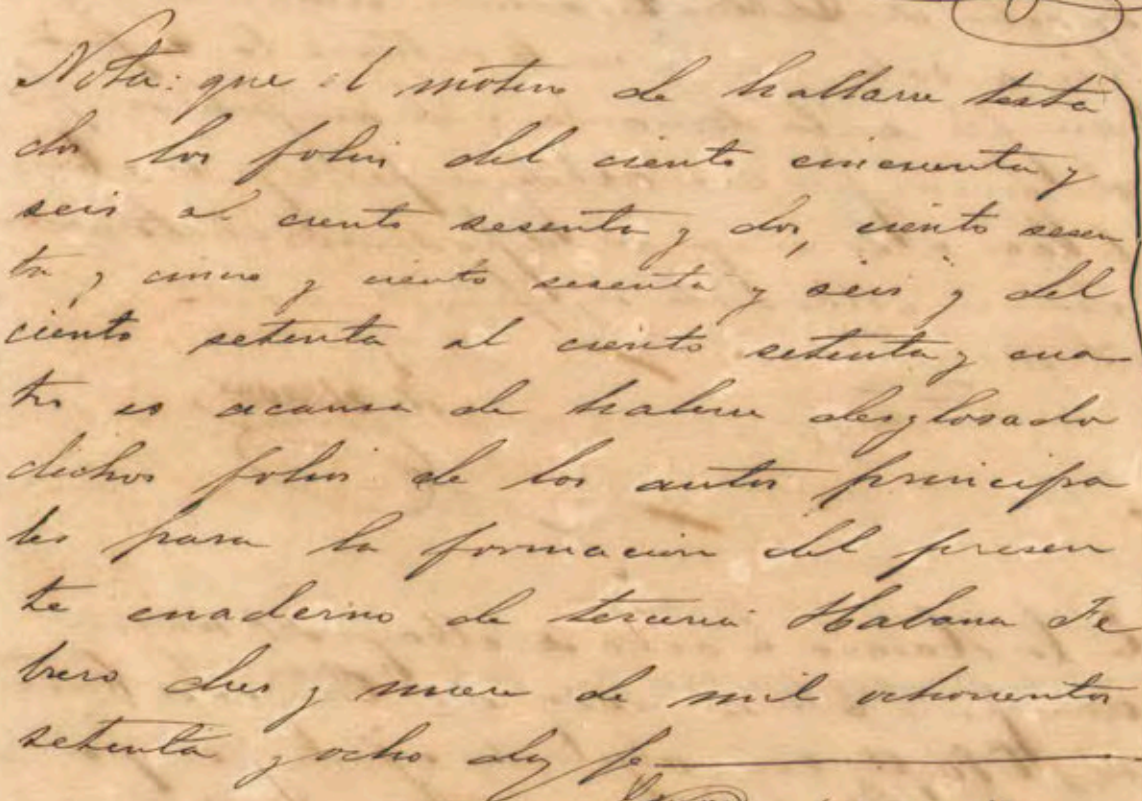 Nota: que el motivo de hallarse testa
dos los folios del ciento cincuenta y
seis al ciento sesenta y dos, ciento sesen
ta y cinco y ciento sesenta y seis y del
ciento setenta al ciento setenta y cua
tro es acausa de haberse desglosado
dichos folios de los autos principa
les para la formacion del presen
te cuaderno de terceria Habana Fe
brero dies y nueve de mil ochocientos
setenta y ocho doy fe